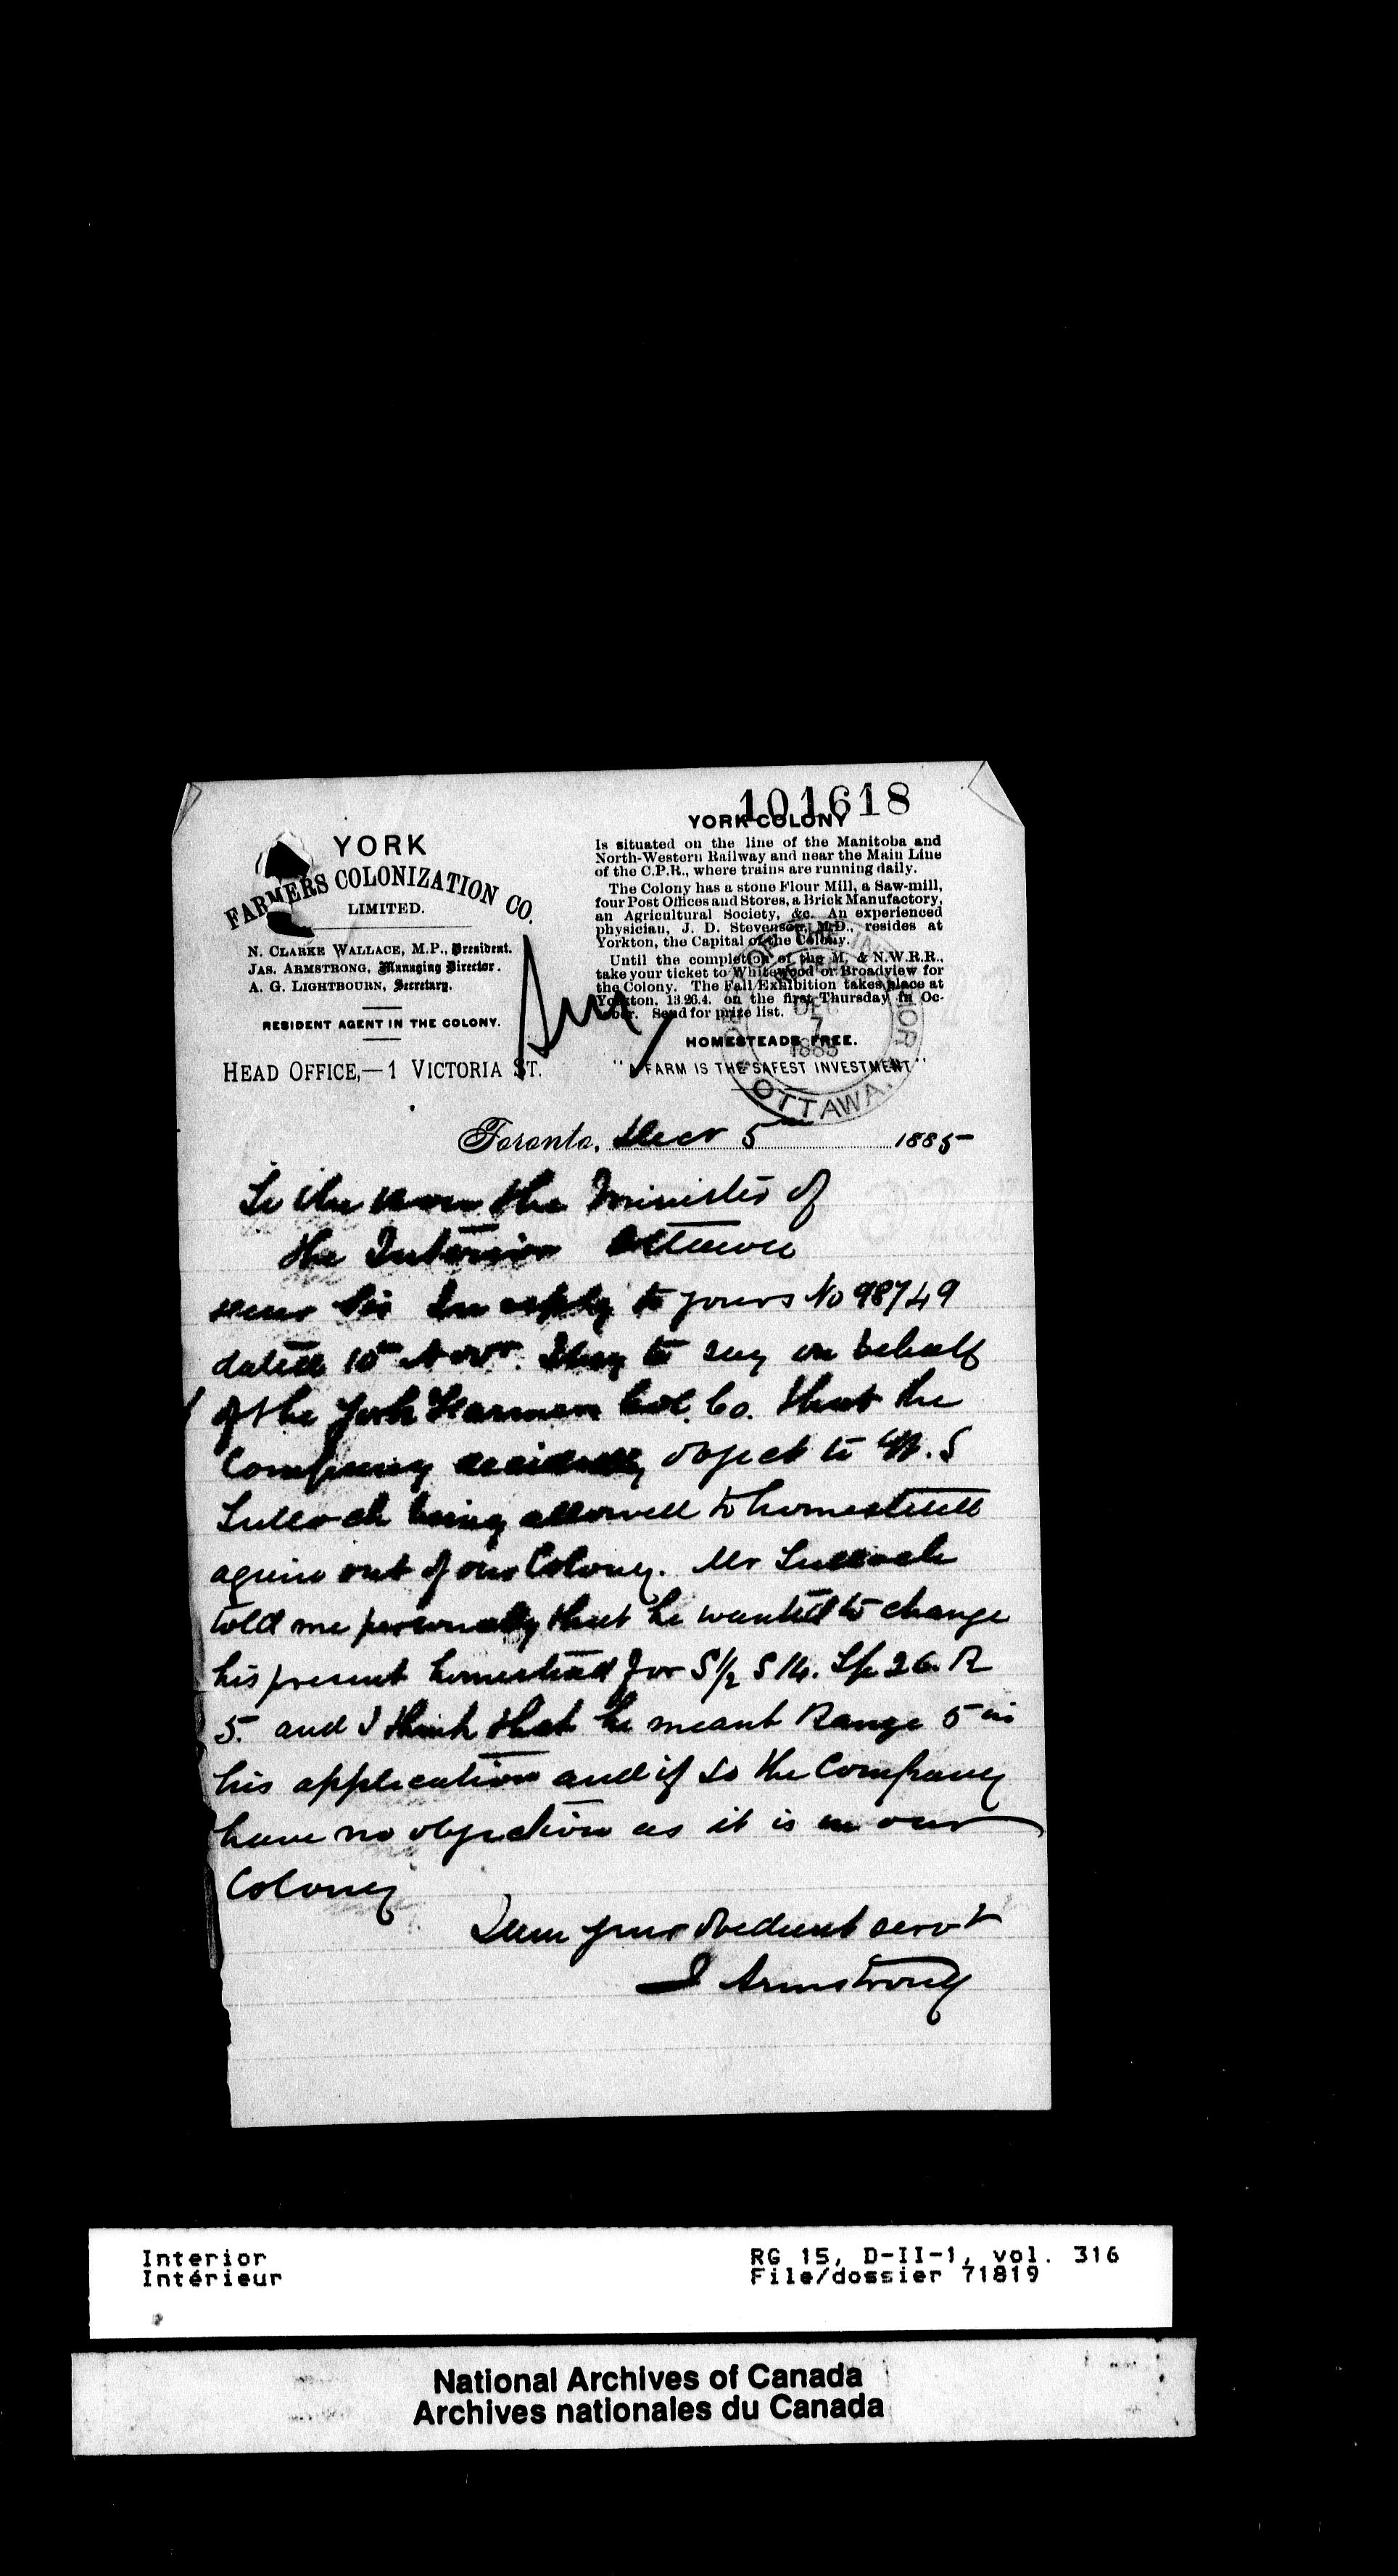 101618
YORK
FARMERS COLONIZATION CO.
LIMITED.
N. CLARKE WALLACE, M.P., President.
JAS. ARMSTRONG, Managing Director.
A. G. LIGHTBOURN, Secretary.
RESIDENT AGENT IN THE COLONY.
HEAD OFFICE,—1 VICTORIA ST.
YORK COLONY
Is situated on the line of the Manitoba and
North-Western Railway and near the Main Line
of the C.P.R., where trains are running daily.
The Colony has a stone Flour Mill, a Saw-mill,
four Post Offices and Stores, a Brick Manufactory,
an Agricultural Society, &c. An experienced
physician, J. D. Stevenson, M.D., resides at
Yorkton, the Capital of the Colony.
Until the completion of the M. & N.W.R.R.,
take your ticket to Whitewood or Broadview for
the Colony. The Fall Exhibition takes place at
Yorkton. 13.26.4. on the first Thursday in Oc-
tober. Send for prize list.
HOMESTEADS FREE.
"A FARM IS THE SAFEST INVESTMENT"
DEC
7
1885
OTTAWA.
Toronto, Decr 5th 1885
To the Hon the Minister of
the Interior Ottawa
Dear Sir In reply to yours No 98749
dated 10th Novr. I beg to say on behalf
of the York Farmers Col. Co. that the
Company decidedly object to W. S
Tulloch being allowed to homestead
again out of our Colony. Mr Tulloch
told me personally that he wanted to change
his present homestead for S½ S 14. Tp 26. R
5. and I think that he meant Range 5 in
his application and if so the Company
have no objection as it is in our
Colony
I am your obedient servt
J Armstrong
Interior
Intérieur
RG 15, D-II-1, vol. 316
File/dossier 71819
National Archives of Canada
Archives nationales du Canada